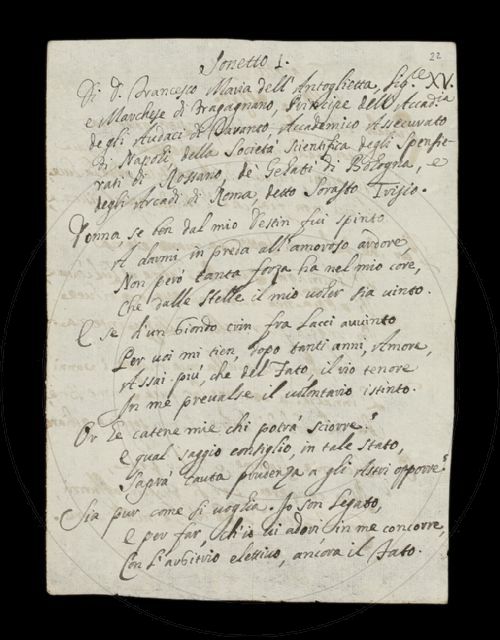 22
Sonetto 1.
XV.
Di D. Francesco Maria dell' Antoglietta, Sig.re
e Marchese di Fragagnano, Principe dell' Accad.ia
degli Audaci di Taranto, Accademico Assecurato
di Napoli, della Società Scientifica degli Spensie-
rati di Rossano, de' Gelati di Bologna, e
degli Arcadi di Roma, detto Sorasto Trisio.
Donna, se ben dal mio Destin fui spinto
A darmi in preda all' amoroso ardore,
Non però tanta forza ha nel mio core,
Che dalle Stelle il mio voler sia vinto.
E se d'un biondo crin fra Lacci avvinto
Per voi mi tien, dopo tanti anni, Amore,
Assai più, che del Fato, il rio tenore
In me prevalse il volontario istinto.
Or Le catene mie chi potrà sciorre?
e qual saggio consiglio, in tale stato,
Saprà cauta prudenza a gli Astri opporre?
Sia pur come si voglia. Io son Legato,
e per far, ch'io vi adori in me concorre,
Con L'arbitrio elettivo, ancora il Fato.